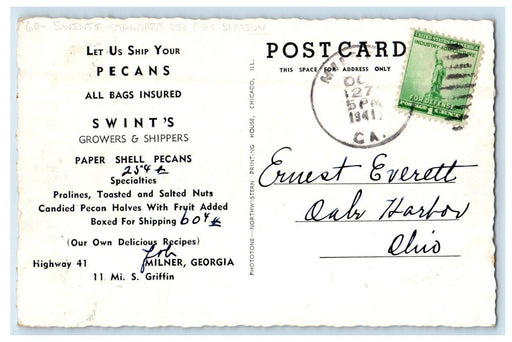 60- SWINTS STANDARD OIL GAS STATION
LET US SHIP YOUR
PECANS
ALL BAGS INSURED
SWINT'S
GROWERS & SHIPPERS
PAPER SHELL PECANS
25¢ #
Specialties
Pralines, Toasted and Salted Nuts
Candied Pecan Halves With Fruit Added
Boxed For Shipping 60¢ #
(Our Own Delicious Recipes)
Highway 41 MILNER, GEORGIA
11 Mi. S. Griffin
PHOTOTONE—NORTHWESTERN PRINTING HOUSE, CHICAGO, ILL.
POSTCARD
THIS SPACE FOR ADDRESS ONLY
OC
27
5 PM
1941
GA.
UNITED STATES OF AMERICA
INDUSTRY·AGRICULTURE
FOR DEFENSE
POSTAGE 1 CENT
Ernest Everett
Oak Harbor
Ohio